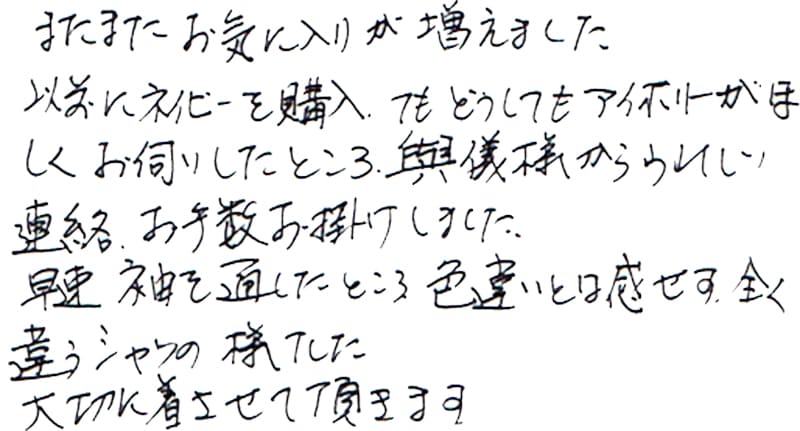 またまたお気に入りが増えました
以前にネイビーを購入.でもどうしてもアイボリーがほ
しくお伺いしたところ.與儀様からうれしい
連絡.お手数お掛けしました.
早速 袖を通したところ 色違いとは感せず.全く
違うシャツの様でした
大切に着させて頂きます